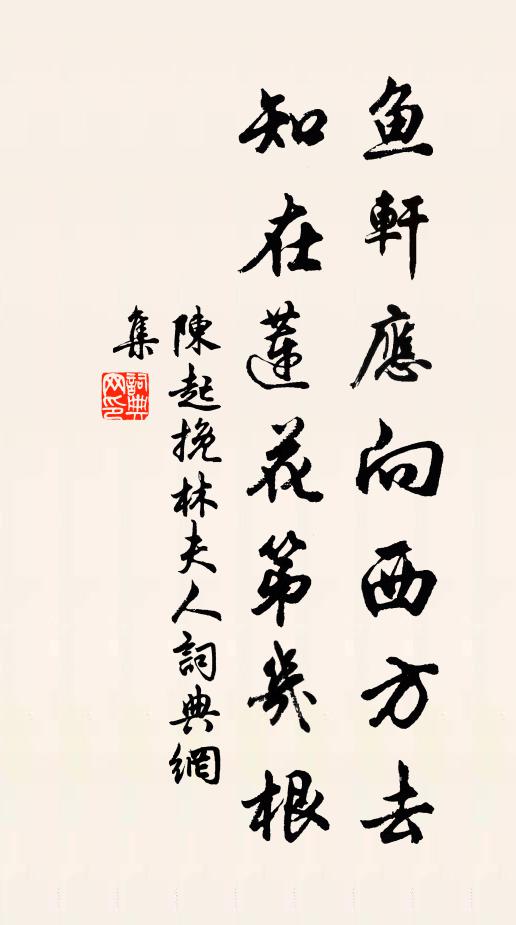 鱼軒應向西方去
知在蓮花第幾根
陳起挽林夫人詞典網
集
詞典网印